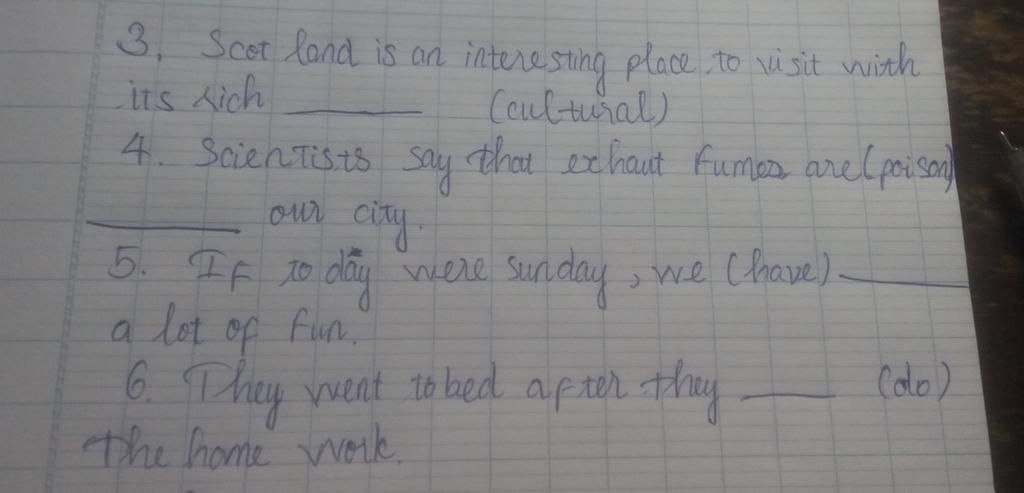 3. Scot land is an interesting place to visit with
its rich ______ (cultural)
4. Scientists say that exhaut fumes are (poison)
______ our city.
5. If to day were sunday, we (have) ______
a lot of fun.
6. They went to bed after they ____ (do)
the home work.